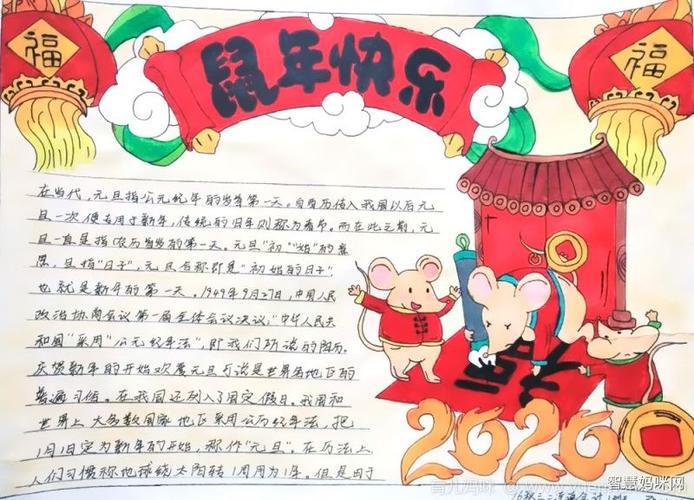 鼠年快乐
福
福
在当代，元旦指公元纪年的岁首第一天。自西历传入我国以后元
旦一次便专用于新年，传统的旧年则称为春节。而在此之前，元
旦一直是指农历岁首的第一天。元旦"初""始"的意
思，旦指"日子"，元旦合称即是"初始的日子"，
也就是新年的第一天。1949年9月27日，中国人民
政治协商会议第一届全体会议决议："中华人民共
和国"采用"公元纪年法"，即我们所说的阳历。
庆贺新年的开始欢度元旦可说是世界各地区的
普遍习俗。在我国还列入了国定假日。我国和
世界上大多数国家地区采用公历纪年法，把
1月1日定为新年的开始，称作"元旦"。在历法上
人们习惯称地球绕太阳转1周用为1年。但是由于
2020
智慧妈咪网